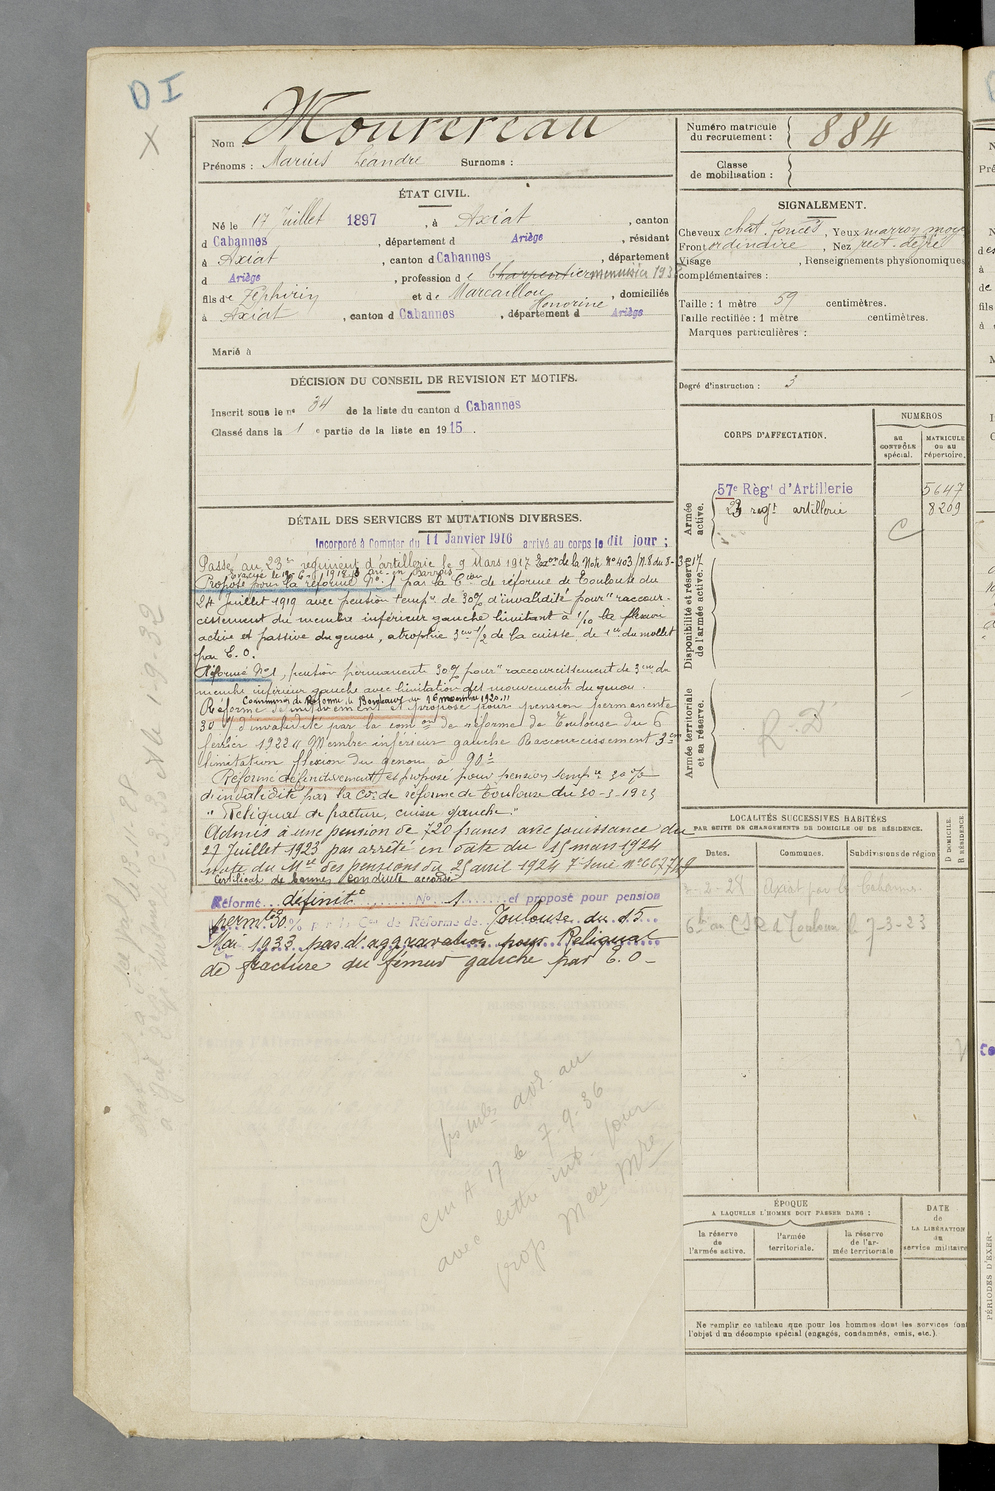 DI
X
Nom : Mourereau
Prénoms : Marius Léandre Surnoms :
ÉTAT CIVIL.
Né le 17 Juillet 1897, à Axiat, canton
d Cabannes, département d Ariège, résidant
à Axiat, canton d Cabannes, département
d Ariège, profession de Charpentier menuisier
fils de Zéphirin et de Marcaillou Honorine, domiciliés
à Axiat, canton d Cabannes, département d Ariège
Marié à
DÉCISION DU CONSEIL DE REVISION ET MOTIFS.
Inscrit sous le nº 34 de la liste du canton d Cabannes
Classé dans la 1 e partie de la liste en 1915.
DÉTAIL DES SERVICES ET MUTATIONS DIVERSES.
Incorporé à Compter du 11 Janvier 1916 arrivé au corps le dit jour ;
Passé au 23e régiment d'artillerie le 9 Mars 1917
Proposé pour la réforme Nº 1 par la Con de réforme de Toulouse du
24 Juillet 1919 avec pension temp re de 30% d'invalidité pour "raccour-
cissement du membre inférieur gauche limitant à 1/10 la flexion
active et passive du genou, atrophie 3cm 1/2 de la cuisse, de 1cm du mollet
par E. O.
Réformé Nº 1, pension permanente 30% pour "raccourcissement de 3cm du
membre inférieur gauche avec limitation des mouvements du genou.
Commission de Réforme de Bordeaux du 16 1920."
Réformé définitivement et proposé pour pension permanente
30% d'invalidité par la com on de réforme de Toulouse du 6
février 1922 "Membre inférieur gauche Raccourcissement 3cm
limitation flexion du genou à 90°
Réformé définitivement et proposé pour pension temp re 30%
d'invalidité par la Con de réforme de Toulouse du 30-3-1923
"Reliquat de fracture, cuisse gauche."
Admis à une pension de 720 francs avec jouissance du
27 Juillet 1923 par arrêté en date du 15 mars 1924
note du Mre des pensions du 25 avril 1924
Certificat de bonne conduite accordé
Réformé définit t Nº 1 et proposé pour pension
permte 30% par la Con de Réforme de Toulouse du 15
Mai 1933 pas d'aggravation pour Reliquat
de fracture du fémur gauche par E. O -
avr. au
CM A 17 le 7-9-36
avec lettre int. pour
prop
Numéro matricule du recrutement : 884
Classe de mobilisation :
SIGNALEMENT.
Cheveux chat. foncés, Yeux marron moy
Front ordinaire, Nez
Visage, Renseignements physionomiques
complémentaires :
Taille : 1 mètre 59 centimètres.
Taille rectifiée : 1 mètre centimètres.
Marques particulières :
Degré d'instruction : 3
CORPS D'AFFECTATION.
NUMÉROS
au CONTRÔLE spécial.
MATRICULE OU AU répertoire.
Armée active.
57e Régt d'Artillerie 5647
23 regt artillerie 8209
C
Disponibilité et réserve de l'armée active.
Armée territoriale et sa réserve.
R.D
LOCALITÉS SUCCESSIVES HABITÉES
PAR SUITE DE CHANGEMENTS DE DOMICILE OU DE RÉSIDENCE.
Dates. Communes. Subdivisions de région
D DOMICILE
R RÉSIDENCE
Axiat par les Cabannes
CSR à Toulouse le 7-3-23
ÉPOQUE
A LAQUELLE L'HOMME DOIT PASSER DANS :
la réserve de l'armée active.
l'armée territoriale.
la réserve de l'armée territoriale
DATE de LA LIBÉRATION du service militaire
Ne remplir ce tableau que pour les hommes dont les services font
l'objet d'un décompte spécial (engagés, condamnés, omis, etc.).
PÉRIODES D'EXER-